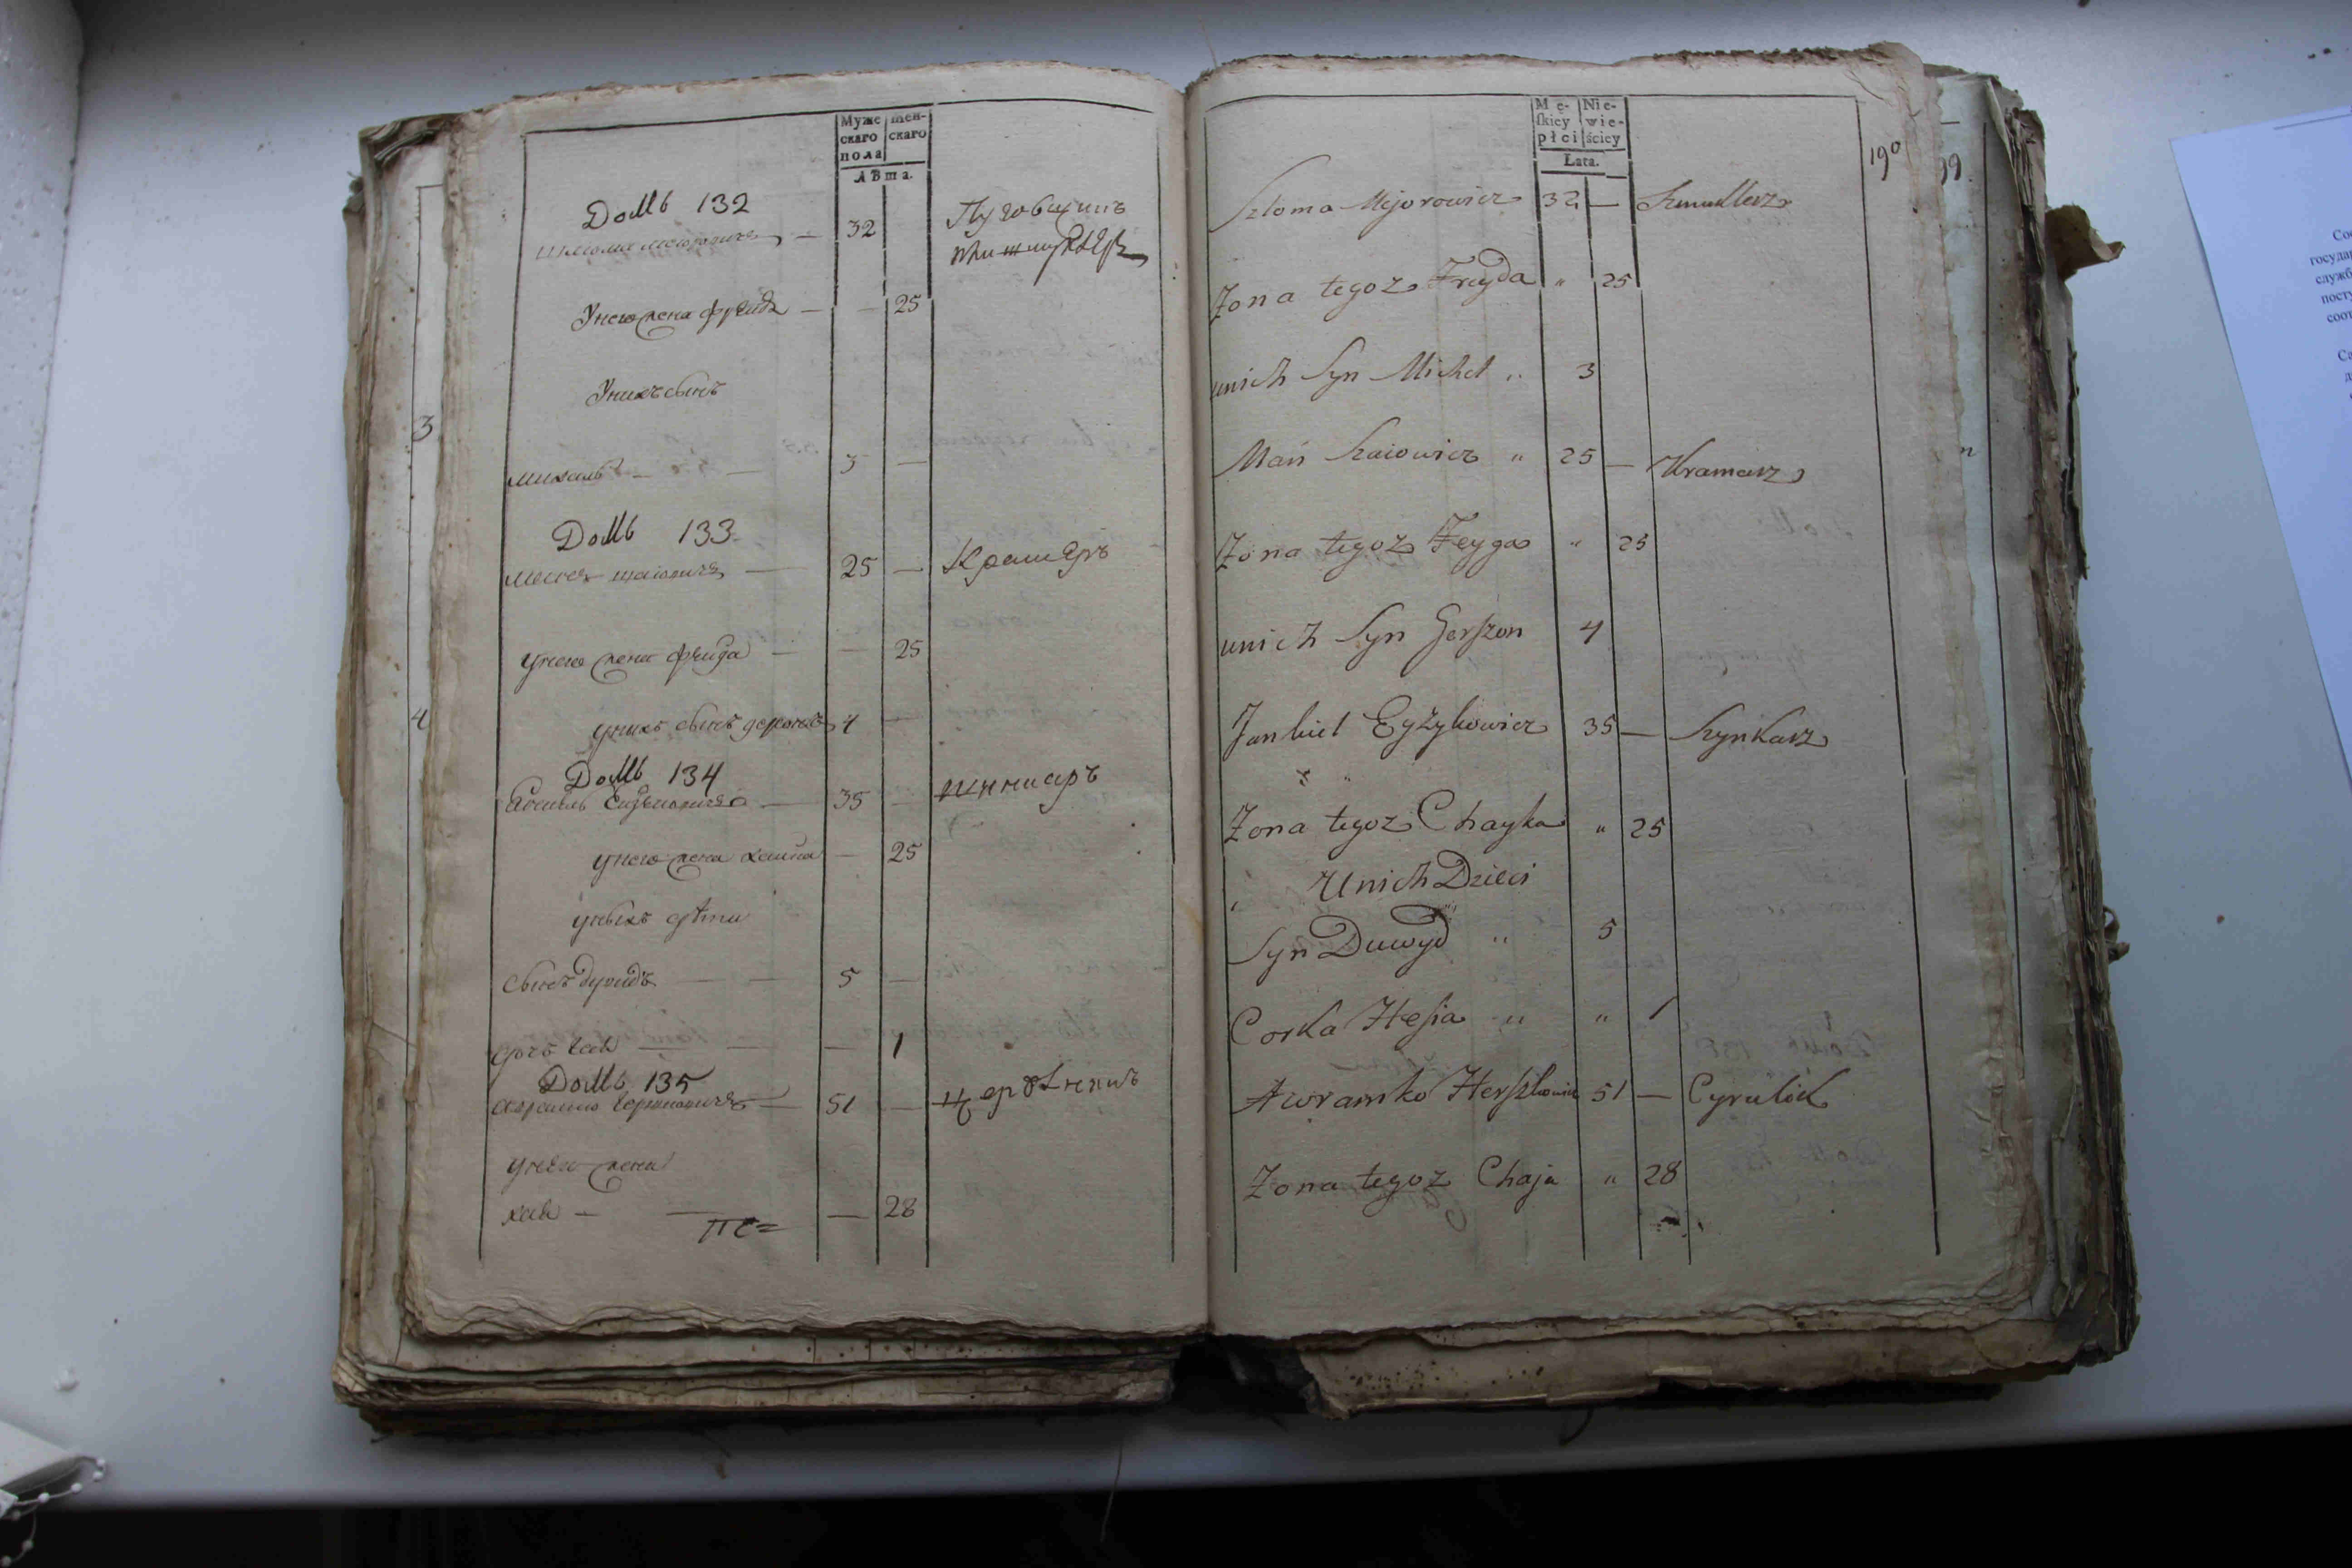 Муже
скаго
пола
Жен-
скаго
лѣта.
Домъ 132
Шлома Меюровичъ — 32
Пуговщикъ
У него жена Фрейда — — 25
У нихъ сынъ
Михель — — 3 —
Домъ 133
шаіовичъ — 25 — Крамеръ
У него жена Фейга — — 25
у нихъ сынъ 4 —
Домъ 134
Янкель Ейзыковичъ — 35 — шинкаръ
у него жена Хайка — 25
у ныхъ дѣти
Сынъ Дувидъ — — 5 —
дочь — — — 1
Домъ 135
Аврамко Гершковичъ — 51 —
у него жена
Хая — — — 28
Mę-
ſkiey
płci
Nie-
wie-
ściey
Łata.
190
99
Szloma Mejorowicz 32 — Szmuklerz
Zona tegoż Freyda " 25
unich Syn Michel " 3
Mań Szaiowicz " 25 — Kramarz
Zona tegoż Feyga " 25
unich Syn Gerszon 4
Jankiel Eyzykowicz 35 — Szynkarz
Zona tegoż Chayka " 25
Unich Dzieci
Syn Duwyd " 5
Corka Hesia " " 1
Awramko Herszkowicz 51 — Cyrulik
Zona tegoż Chaja " 28
3
4